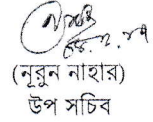 (নূরুন নাহার)
উপ সচিব